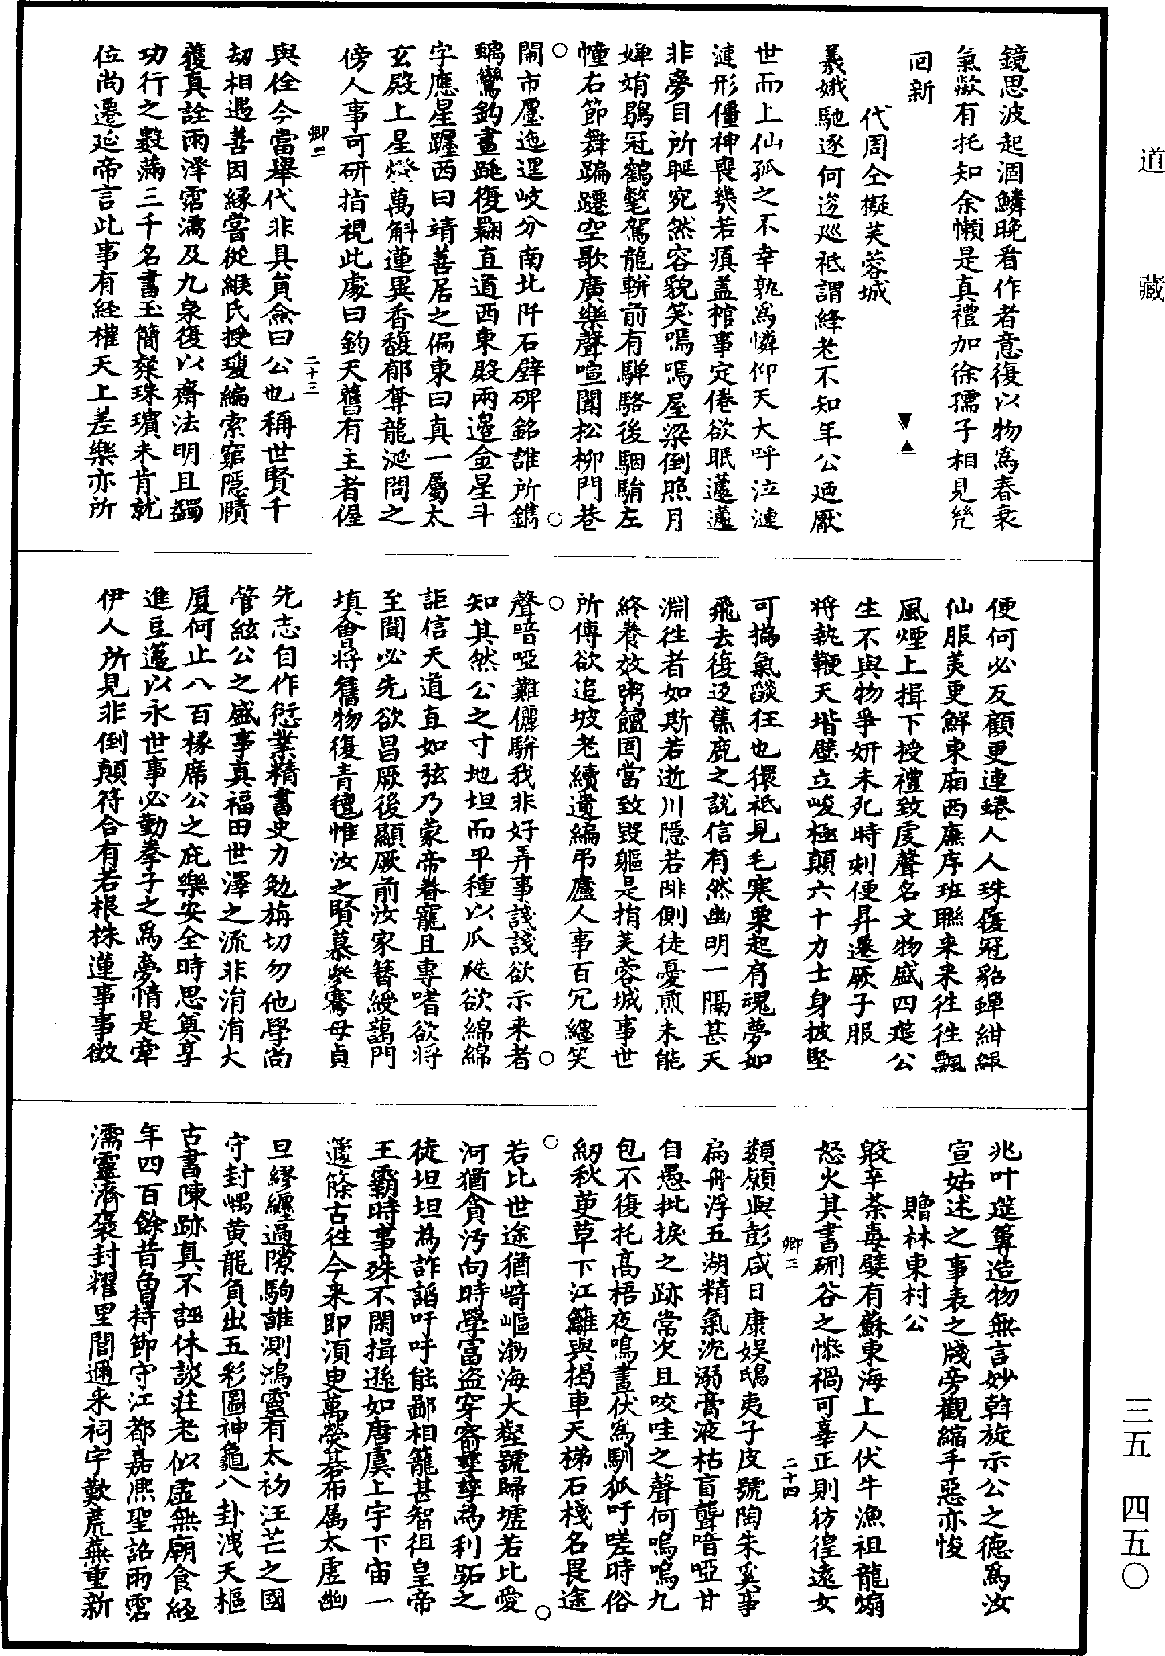 道藏
三五 四五〇
鏡思波起涸鱗晚看作者意復以物為春衰
氣歘有托知余懶是真禮加徐孺子相見幾
回新
代周仝擬芙蓉城
羲娥馳逐何逡巡祇謂絳老不知年公迺厭
世而上仙孤之不幸孰為憐仰天大呼泣漣
漣形僵神喪幾若瘨蓋棺事定倦欲眠蘧蘧
非夢目所睚宛然容貌笑嗎嗎屋梁倒照月
嬋娟鶡冠鶴氅駕龍輧前有驒駱後駰騚左
幢右節舞蹁躚空歌廣樂聲喧闐松柳門巷
鬧市廛迤邐岐分南北阡石壁碑銘誰所鐫
鸞鈎畫跳復翾直道西東殿兩邊金星斗
字應星躔西曰靖善居之偏東曰真一屬太
玄殿上星燈萬斛蓮異香馥郁奪龍涎問之
傍人事可研指視此處曰鈞天舊有主者偓
卿二
二十三
與佺今當舉代非具員僉曰公也稱世賢千
劫相遇善因緣嘗從緱氏授瓊編索窮隱賾
獲真詮雨澤霑濡及九泉復以齋法明且蠲
功行之數滿三千名書玉簡粲珠璸未肯就
位尚遷延帝言此事有經權天上差樂亦所
便何必反顧更連蜷人人珠履冠貂蟬紺緅
仙服美更鮮東廂西廡序班聯來來往往飄
風煙上揖下授禮致虔聲名文物盛四筵公
生不與物爭妍未死時刻便昇遷厥子服
將執鞭天堦壁立峻極顛六十力士身披堅
可搊氣燄狂也獧祗見毛寒粟起肩魂夢如
飛去復迓蕉鹿之說信有然幽明一隔甚天
淵往者如斯若逝川隱若陫側徒憂煎未能
終養效粥饘固當致毀軀是捐芙蓉城事世
所傳欲追坡老續遺編帀廬人事百冗纏笑
聲喑啞難儷駢我非好弄事諓諓欲示來者
知其然公之寸地坦而平種以瓜瓞欲綿綿
詎信天道直如弦乃蒙帝眷寵且專嗜欲將
至聞必先欲昌厥後顯厥前汝家簪綬藹門
填會將舊物復青氊惟汝之賢慕參騫母貞
先志自作愆業精書史力勉旃切勿他學尚
管絃公之盛事真福田世澤之流非涓涓大
厦何止八百椽席公之庇樂安全時思奠享
進豆籩以永世事必動拳子之為夢情是牽
伊人所見非倒顛符合有若根株蓮事事徵
兆叶筵篿造物無言妙斡旋示公之德為汝
宣姑述之事表之牋旁觀縮手惡亦悛
贈林東村公
殷辛荼毒嬖有蘇東海上人伏牛漁祖龍煽
怒火其書硎谷之慘禍可辜正則彷徨遠女
顡願與彭咸日康娛鴟夷子皮號陶朱奚事
扁舟浮五湖精氣沉溺膏液枯盲聾喑啞甘
卿二
二十四
自愚批捩之跡常次且咬哇之聲何嗚嗚九
包不復托高梧夜鳴晝伏為馴狐吁嗟時俗
紉秋荽草下江蘺與揭車天梯石棧名畏途
若比世途猶崎嶇渤海大壑號歸墟若比愛
河猶貪汚向時學富盜穿窬孳孳為利跖之
徒坦坦為詐諂吁吁能鄙相籠甚智徂皇帝
王霸時事殊不閑揖遜如唐虞上宇下宙一
蘧篨古往今來即須臾萬熒碁布属太虛幽
旦繆纏過隙駒誰測鴻靈有太初汪芒之國
守封嵎黃龍負出五彩圖神龜八卦洩天樞
古書陳跡真不誣休談莊老似虛無廟食經
年四百餘昔曾持節守江都嘉熙聖詔雨霑
濡靈濟褒封耀里閭邇來祠宇歎荒蕪重新